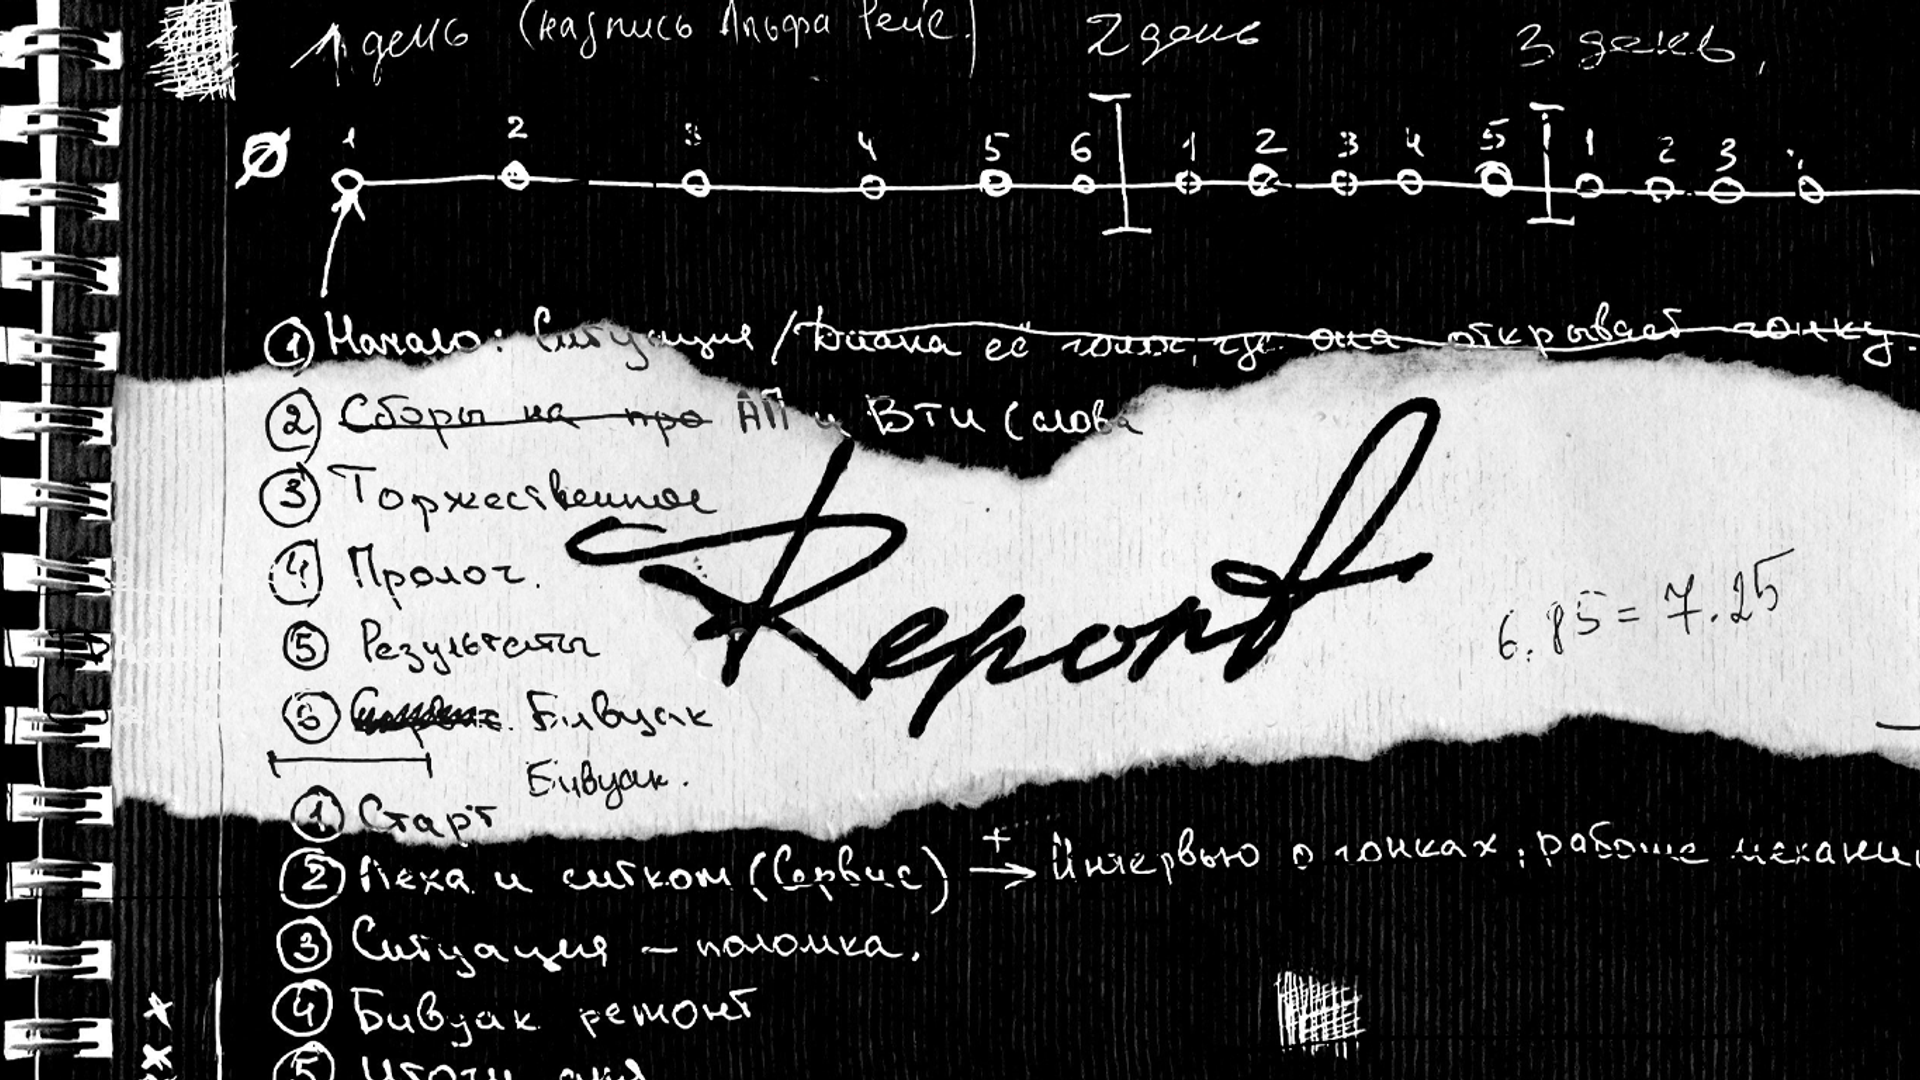 1 день (надпись Альфа Рейс.) 2 день 3 день,
Ø 1 2 3 4 5 6 1 2 3 4 5 1 2 3
① Начало: Ситуация / Диана её где она открывает гонку.
② Сборы на про АП и ВТИ (слова
③ Торжественное
④ Пролог.
⑤ Результаты
Report
6.85 = 7.25
⑥ Бивуак
Бивуак.
① Старт
② Меха и ситком (Сервис) + → Интервью о гонках, работе механи
③ Ситуация – поломка.
④ Бивуак ремонт
⑤ Итоги дня
x x x